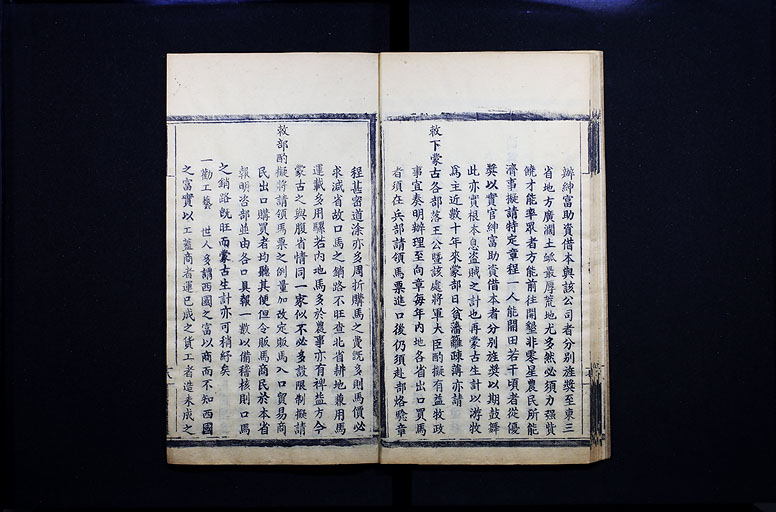 辦紳富助資借本與該公司者分別旌獎至東三
省地方廣濶土脈最厚荒地尤多然必須力强貲
饒才能率眾者方能前往開墾非零星農民所能
濟事擬請特定章程一人能開田若干頃者從優
獎以實官紳富助資借本者分別旌獎以期鼓舞
此亦實根本息盜賊之計也再蒙古生計以游牧
爲主近數十年來蒙部日貧藩籬疎薄亦請
敕下蒙古各部落王公暨該處將軍大臣酌擬有益牧政
事宜奏明辦理至向章每年內地各省出口買馬
者須在兵部請領馬票進口後仍須赴部烙驗章
程甚密道涂亦多周折購馬之費旣多則馬價必
求減省故口馬之銷路不旺查北省耕地兼用馬
運載多用騾若內地馬多於農事亦有裨益方今
蒙古之與腹省情同一家似不必多設限制擬請
敕部酌擬將請領馬票之例量加改定販馬入口貿易商
民出口購買者均聽其便但令販馬商民於本省
報明咨部並由各口具報一數以備稽核則口馬
之銷路旣旺而蒙古生計亦可稍紓矣
一勸工藝 世人多謂西國之富以商而不知西國
之富實以工蓋商者運已成之貨工者造未成之